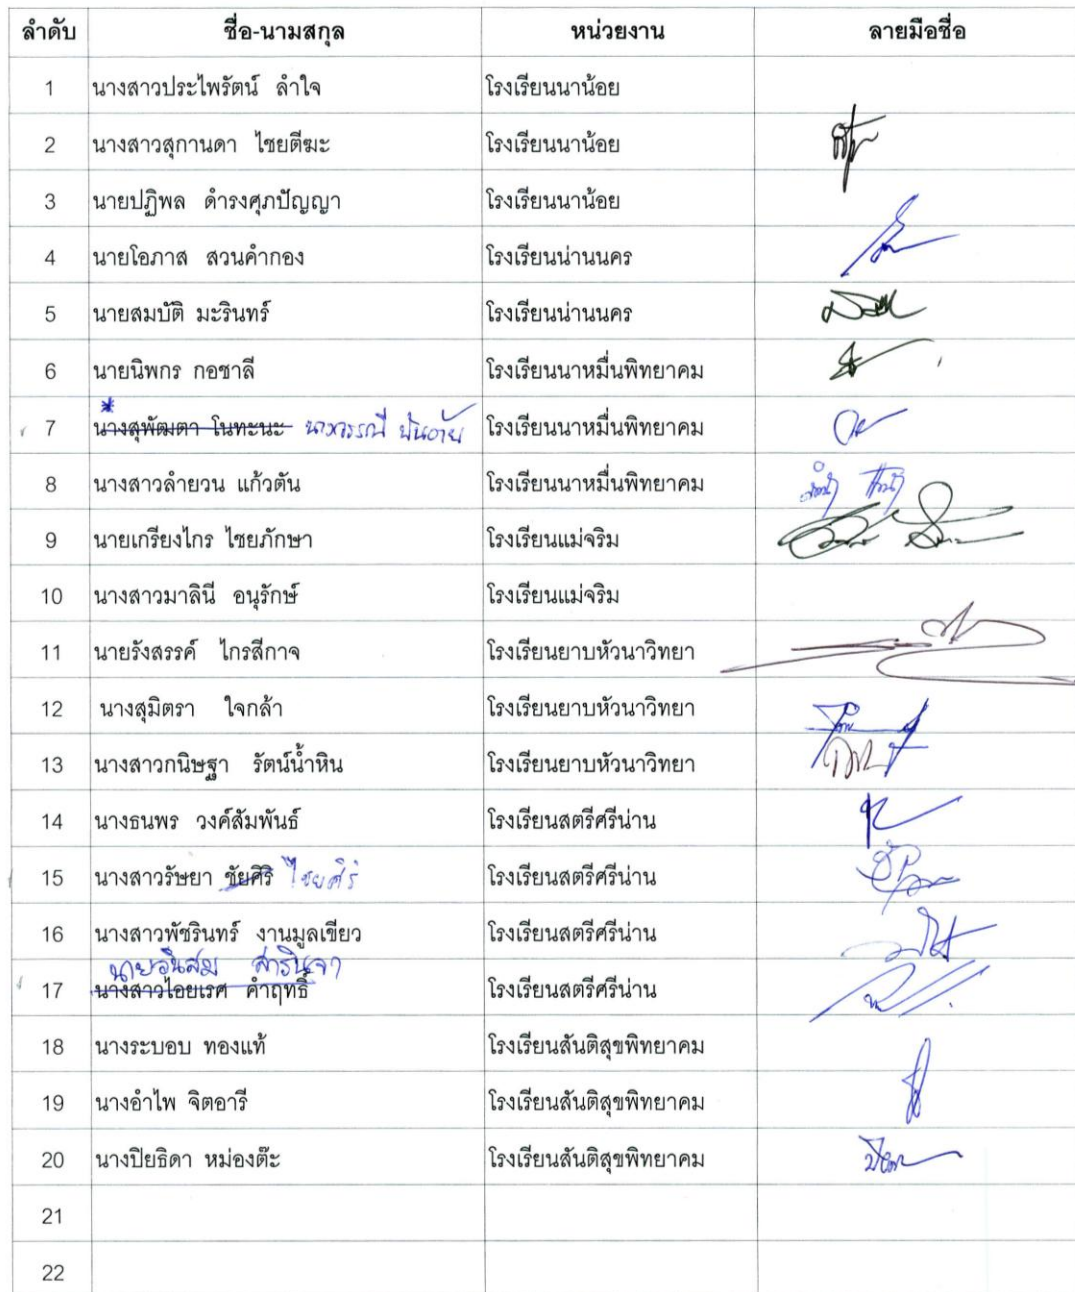 ลำดับ ชื่อ-นามสกุล หน่วยงาน ลายมือชื่อ
1 นางสาวประไพรัตน์ ลำใจ โรงเรียนนาน้อย
2 นางสาวสุกานดา ไชยตีฆะ โรงเรียนนาน้อย
3 นายปฏิพล ดำรงศุภปัญญา โรงเรียนนาน้อย
4 นายโอภาส สวนคำกอง โรงเรียนน่านนคร
5 นายสมบัติ มะรินทร์ โรงเรียนน่านนคร
6 นายนิพกร กอชาลี โรงเรียนนาหมื่นพิทยาคม
7 นางสุพัฒตา โนทะนะ โรงเรียนนาหมื่นพิทยาคม
8 นางสาวลำยวน แก้วตัน โรงเรียนนาหมื่นพิทยาคม
9 นายเกรียงไกร ไชยภักษา โรงเรียนแม่จริม
10 นางสาวมาลินี อนุรักษ์ โรงเรียนแม่จริม
11 นายรังสรรค์ ไกรสีกาจ โรงเรียนยาบหัวนาวิทยา
12 นางสุมิตรา ใจกล้า โรงเรียนยาบหัวนาวิทยา
13 นางสาวกนิษฐา รัตน์น้ำหิน โรงเรียนยาบหัวนาวิทยา
14 นางธนพร วงค์สัมพันธ์ โรงเรียนสตรีศรีน่าน
15 นางสาวรัษยา ชัยศิริ ไชยศิริ โรงเรียนสตรีศรีน่าน
16 นางสาวพัชรินทร์ งานมูลเขียว โรงเรียนสตรีศรีน่าน
นายอินสม สารินจา
17 นางสาวไอยเรศ คำฤทธิ์ โรงเรียนสตรีศรีน่าน
18 นางระบอบ ทองแท้ โรงเรียนสันติสุขพิทยาคม
19 นางอำไพ จิตอารี โรงเรียนสันติสุขพิทยาคม
20 นางปิยธิดา หม่องต๊ะ โรงเรียนสันติสุขพิทยาคม
21
22